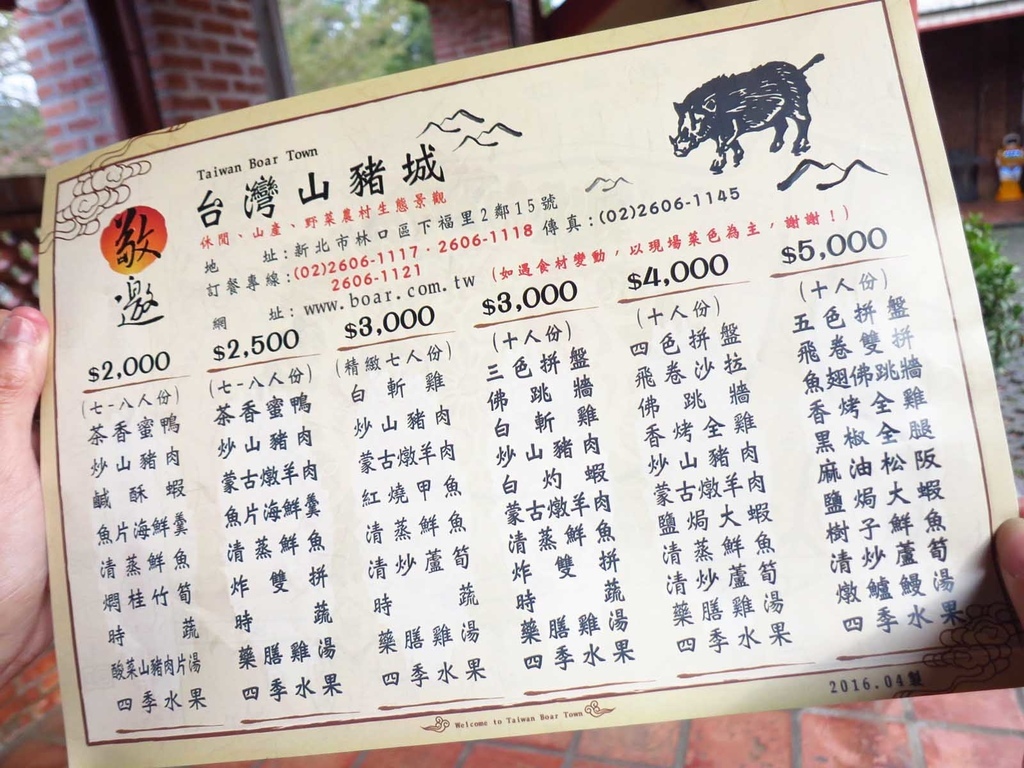 敬邀
Taiwan Boar Town
台灣山豬城
休閒、山產、野菜農村生態景觀
地 址:新北市林口區下福里2鄰15號
訂餐專線:(02)2606-1117·2606-1118 傳真:(02)2606-1145
2606-1121
網 址:www.boar.com.tw (如遇食材變動,以現場菜色為主,謝謝!)
$2,000
(七-八人份)
茶香蜜鴨
炒山豬肉
鹹酥蝦
魚片海鮮羹
清蒸鮮魚
燜桂竹筍
時蔬
酸菜山豬肉片湯
四季水果
$2,500
(七-八人份)
茶香蜜鴨
炒山豬肉
蒙古燉羊肉
魚片海鮮羹
清蒸鮮魚
炸雙拼
時蔬
藥膳雞湯
四季水果
$3,000
(精緻七人份)
白斬雞
炒山豬肉
蒙古燉羊肉
紅燒甲魚
清蒸鮮魚
清炒蘆筍
時蔬
藥膳雞湯
四季水果
$3,000
(十人份)
三色拼盤
佛跳牆
白斬雞
炒山豬肉
白灼蝦
蒙古燉羊肉
清蒸鮮魚
炸雙拼
時蔬
藥膳雞湯
四季水果
$4,000
(十人份)
四色拼盤
飛卷沙拉
佛跳牆
香烤全雞
炒山豬肉
蒙古燉羊肉
鹽焗大蝦
清蒸鮮魚
清炒蘆筍
藥膳雞湯
四季水果
$5,000
(十人份)
五色拼盤
飛卷雙拼
魚翅佛跳牆
香烤全雞
黑椒全腿
麻油松阪
鹽焗大蝦
樹子鮮魚
清炒蘆筍
燉鱸鰻湯
四季水果
2016.04製
Welcome to Taiwan Boar Town